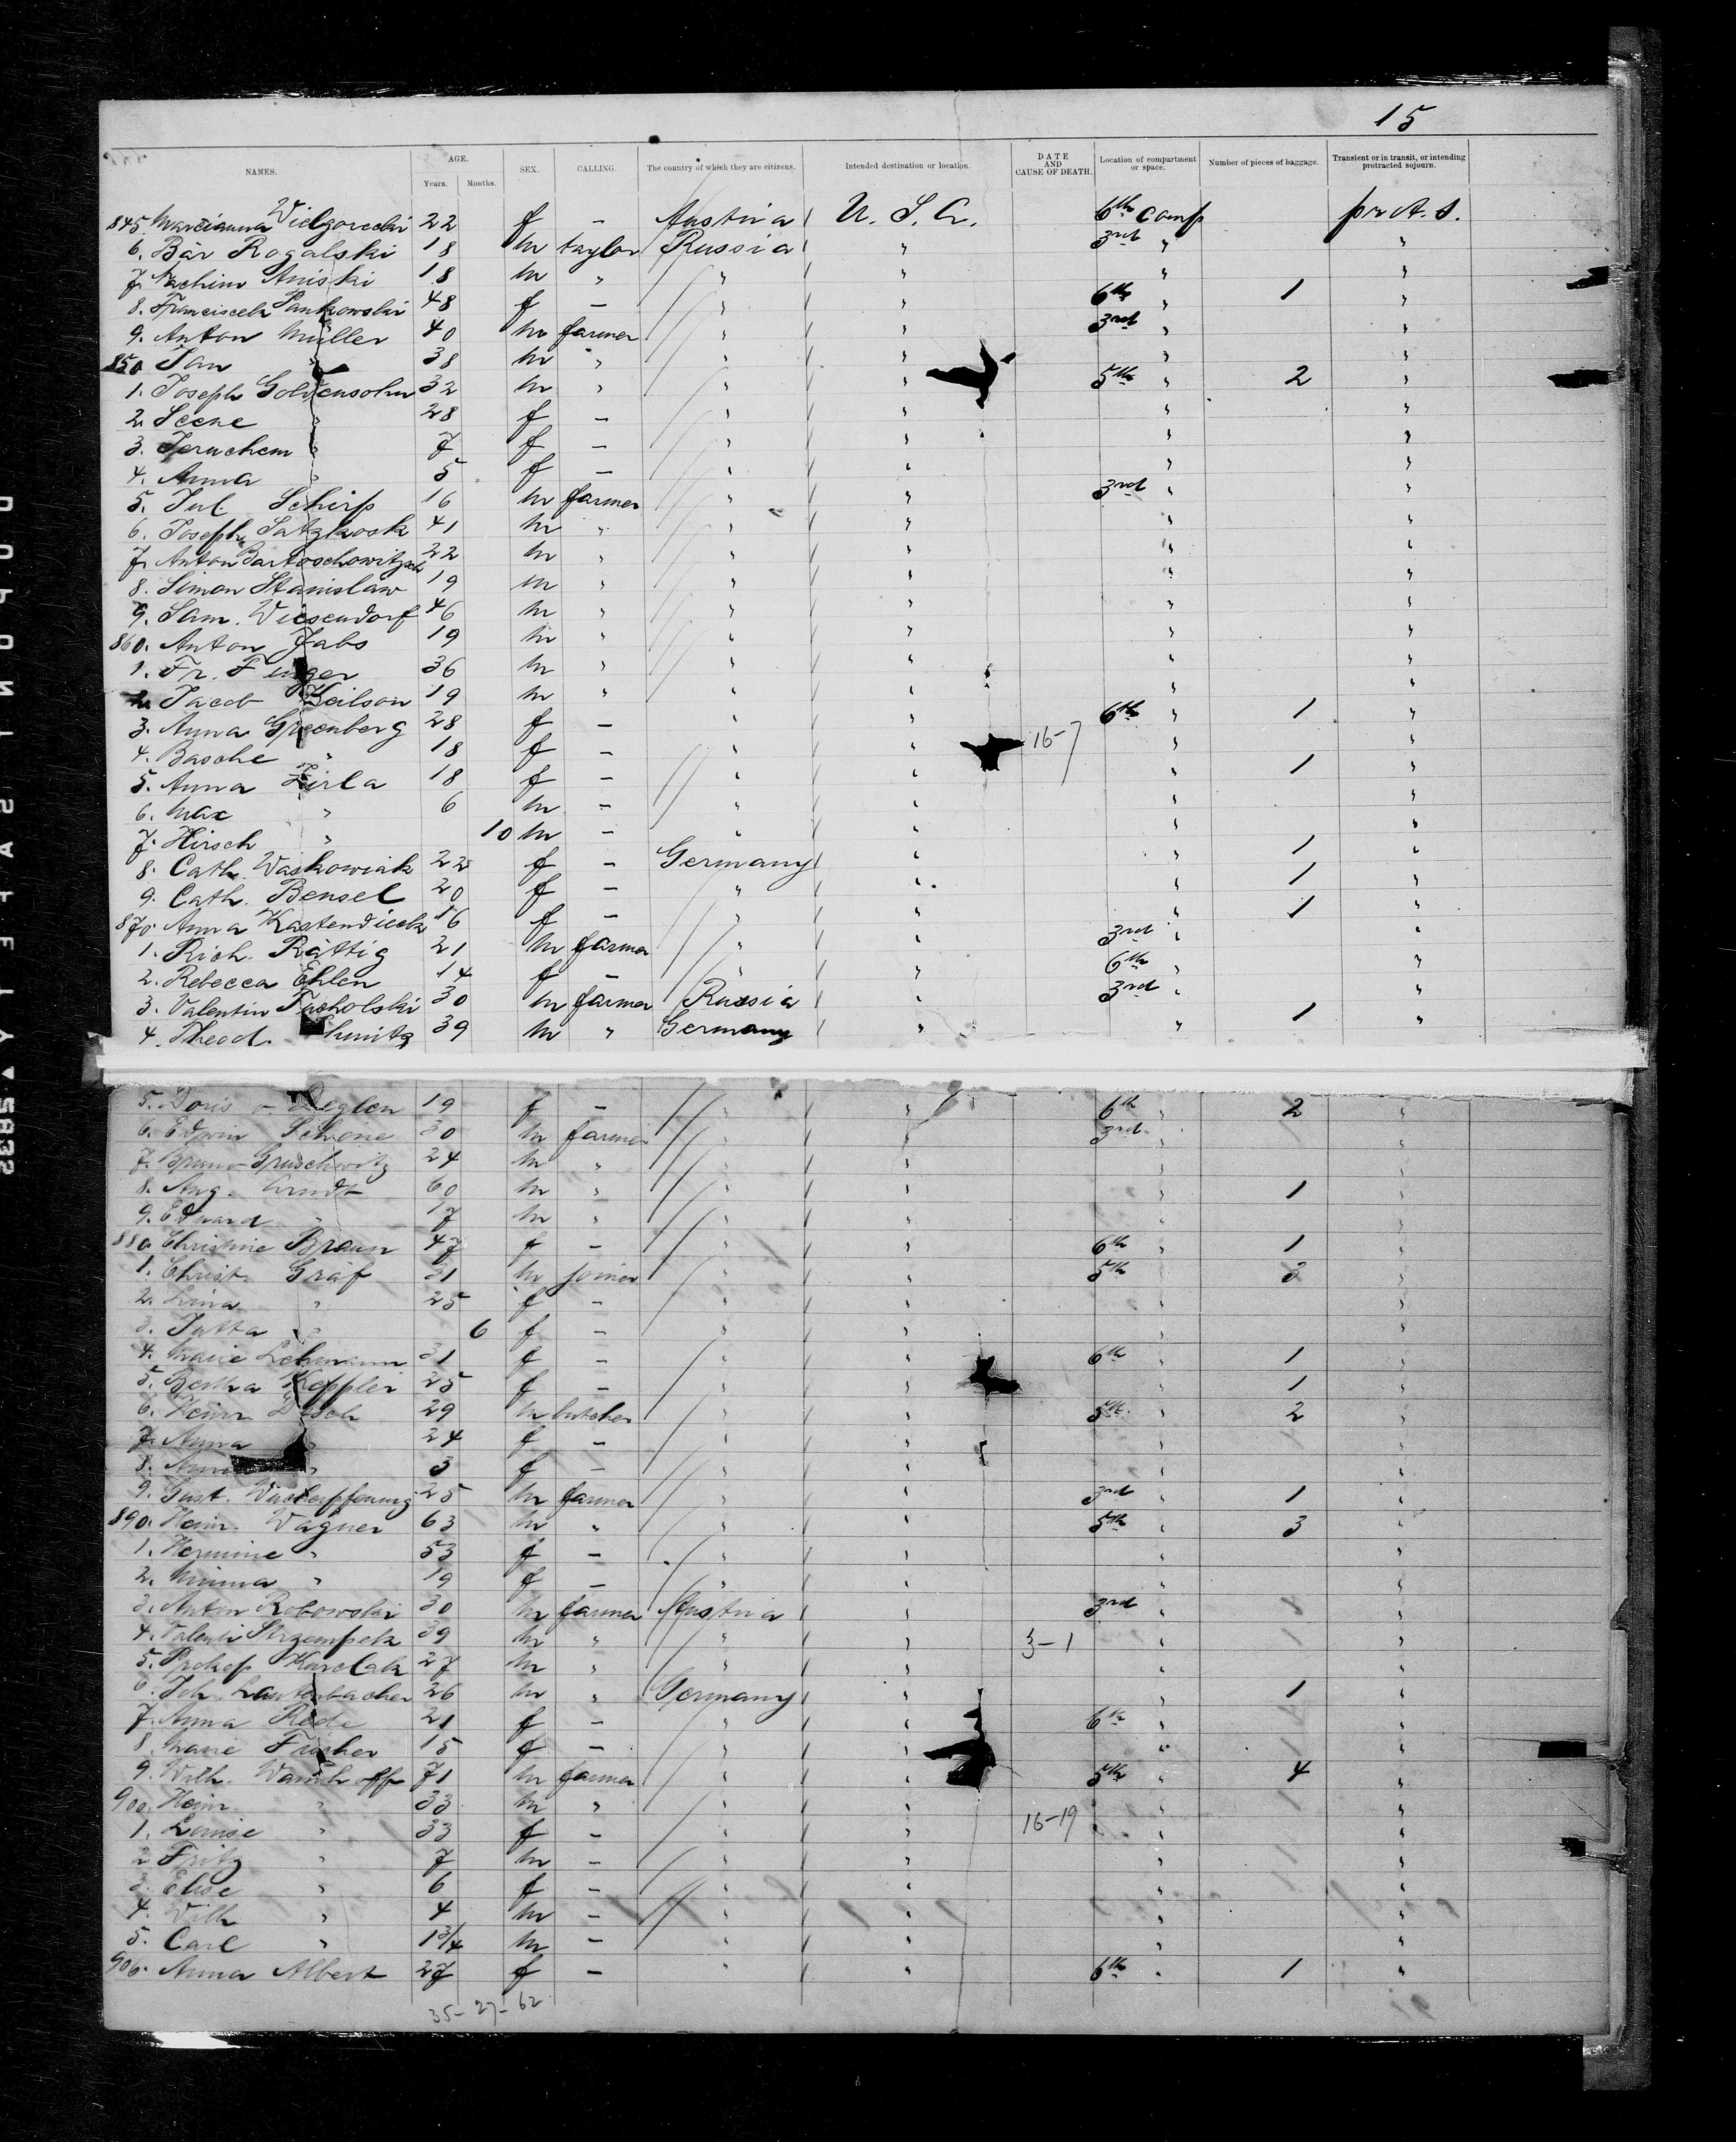 15
NAMES. AGE. Years. Months. SEX. CALLING. The country of which they are citizens. Intended destination or location. DATE AND CAUSE OF DEATH. Location of compartment or space. Number of pieces of baggage. Transient or in transit, or intending protracted sojourn.
845 Marcianna Wielgorecki 22 f – Austria U. S. A. 6th Comp pr A. S.
6. Bär Rogalski 18 m taylor Russia " 3rd " "
7. Nachim Aniski 18 m " " " " "
8. Franciscek Pankowski 48 f – " " 6th " 1 "
9. Anton Müller 40 m farmer " " 3rd " "
850 Jan " 38 m " " " " "
1. Joseph Goldensohn 32 m " " " 5th " 2 "
2. Scene " 28 f – " " " "
3. Jeruchem " 7 f – " " " "
4. Anna " 5 f – " " " "
5. Jul. Schirp 16 m farmer " " 3rd " "
6. Joseph Satzkosk 41 m " " " " "
7. Anton Bartoschowitzsch 22 m " " " " "
8. Simon Stanislaw 19 m " " " " "
9. Sam. Wiesendorf 46 m " " " " "
860. Anton Jabs 19 m " " " " "
1. Fr. F 36 m " " " " "
2. Jacob Keilson 19 m " " " " "
3. Anna Greenberg 28 f – " " 6th " 1 "
4. Basche " 18 f – " " 16-7 " "
5. Anna Zirla 18 f – " " " 1 "
6. Max " 6 m – " " " "
7. Hirsch " 10 m – " " " "
8. Cath. Waskowiak 22 f – Germany " " 1 "
9. Cath. Bensel 20 f – " " " 1 "
870. Anna Kastendieck 16 f – " " " 1 "
1. Rich. Rättig 21 m farmer " " 3rd " "
2. Rebecca Ehlen 14 f – " " 6th " "
3. Valentin Tucholski 30 m farmer Russia " 3rd " "
4. Theod. 39 m " Germany " " 1 "
5. Doris v 19 f – " " 6th " 2 "
6. Edwin Schöne 30 m farmer " " 3rd " "
7. Bruno Gruschwitz 24 m " " " " "
8. Aug. Arndt 60 m " " " " 1 "
9. Eduard " 17 m " " " " "
880 Christine Braun 47 f – " " 6th " 1 "
1. Christ. Gräf 31 m joiner " " 5th " 3 "
2. Lina " 25 f – " " " "
3. Jutta " 6 f – " " " "
4. Marie Lehmann 31 f – " " 6th " 1 "
5. Bertha Keppler 25 f – " " " 1 "
6. Heinr. 29 m butcher " " 5th " 2 "
7. Anna " 24 f – " " " "
8. " 3 f – " " " "
9. Gust. Wucherpfennig 25 m farmer " " 3rd " 1 "
890. Heinr. Wagner 63 m " " " 5th " 3 "
1. Hermine " 53 f – " " " "
2. Minna " 19 f – " " " "
3. Anton Robowski 30 m farmer Austria " 3rd " "
4. Valenti Strzempek 39 m " " " 3-1 " "
5. Prokop Kurelak 27 m " " " " "
6. Joh. Lautenbacher 26 m " Germany " " 1 "
7. Anna Rede 21 f – " " 6th " "
8. Marie Fischer 15 f – " " " "
9. Wilh. Wamhoff 71 m farmer " " 5th " 4 "
900. Heinr. " 33 m " " " " "
1. Louise " 33 f – " " 16-19 " "
2 Fritz " 7 m – " " " "
3. Elise " 6 f – " " " "
4. Wilh " 4 m – " " " "
5. Carl " 1 3/4 m – " " " "
906. Anna Albert 27 f – " " 6th " 1 "
35- 27- 62